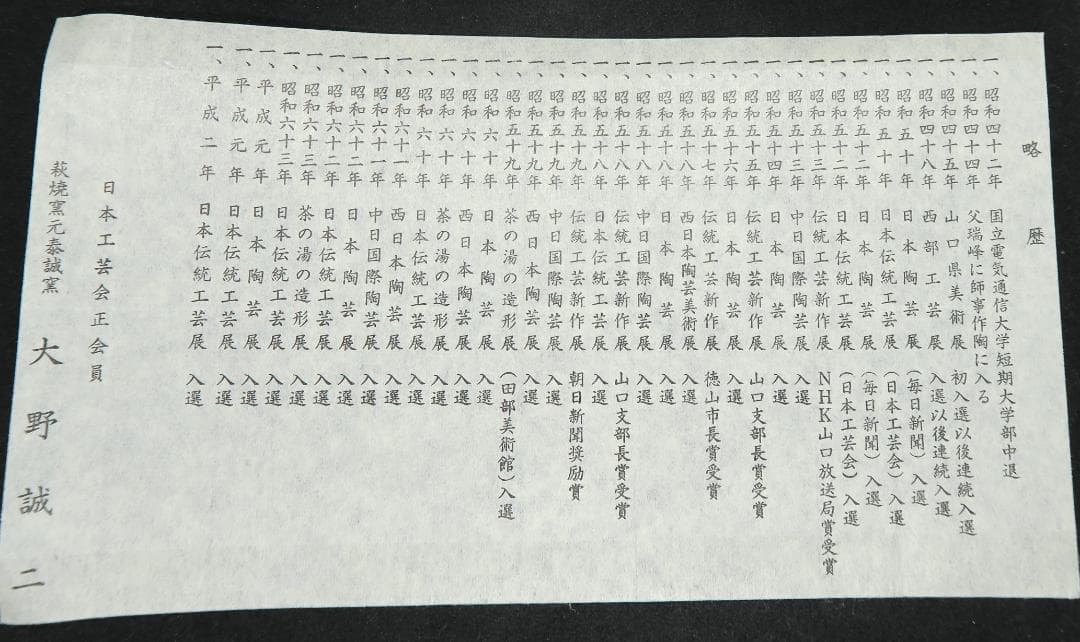 略歴
一、昭和四十二年 国立電気通信大学短期大学部中退
一、昭和四十四年 父瑞峰に師事作陶に入る
一、昭和四十五年 山口県美術展 初入選以後連続入選
一、昭和四十八年 西部工芸展 入選以後連続入選
一、昭和五十年 日本陶芸展 (毎日新聞)入選
一、昭和五十年 日本伝統工芸展 (日本工芸会)入選
一、昭和五十二年 日本陶芸展 (毎日新聞)入選
一、昭和五十二年 日本伝統工芸展 (日本工芸会)入選
一、昭和五十三年 伝統工芸新作展 NHK山口放送局賞受賞
一、昭和五十三年 中日国際陶芸展 入選
一、昭和五十四年 日本陶芸展 入選
一、昭和五十五年 伝統工芸新作展 山口支部長賞受賞
一、昭和五十六年 日本陶芸展 入選
一、昭和五十七年 伝統工芸新作展 徳山市長賞受賞
一、昭和五十八年 西日本陶芸美術展 入選
一、昭和五十八年 日本陶芸展 入選
一、昭和五十八年 中日国際陶芸展 入選
一、昭和五十八年 伝統工芸新作展 山口支部長賞受賞
一、昭和五十八年 日本伝統工芸展 入選
一、昭和五十九年 伝統工芸新作展 朝日新聞奨励賞
一、昭和五十九年 中日国際陶芸展 入選
一、昭和五十九年 西日本陶芸展 入選
一、昭和五十九年 茶の湯の造形展 (田部美術館)入選
一、昭和六十年 日本陶芸展 入選
一、昭和六十年 西日本陶芸展 入選
一、昭和六十年 茶の湯の造形展 入選
一、昭和六十年 日本伝統工芸展 入選
一、昭和六十一年 西日本陶芸展 入選
一、昭和六十一年 中日国際陶芸展 入選
一、昭和六十二年 日本陶芸展 入選
一、昭和六十二年 日本伝統工芸展 入選
一、昭和六十三年 茶の湯の造形展 入選
一、昭和六十三年 日本伝統工芸展 入選
一、平成元年 日本陶芸展 入選
一、平成元年 日本伝統工芸展 入選
一、平成二年 日本伝統工芸展 入選
日本工芸会正会員
萩焼窯元泰誠窯
大野誠二